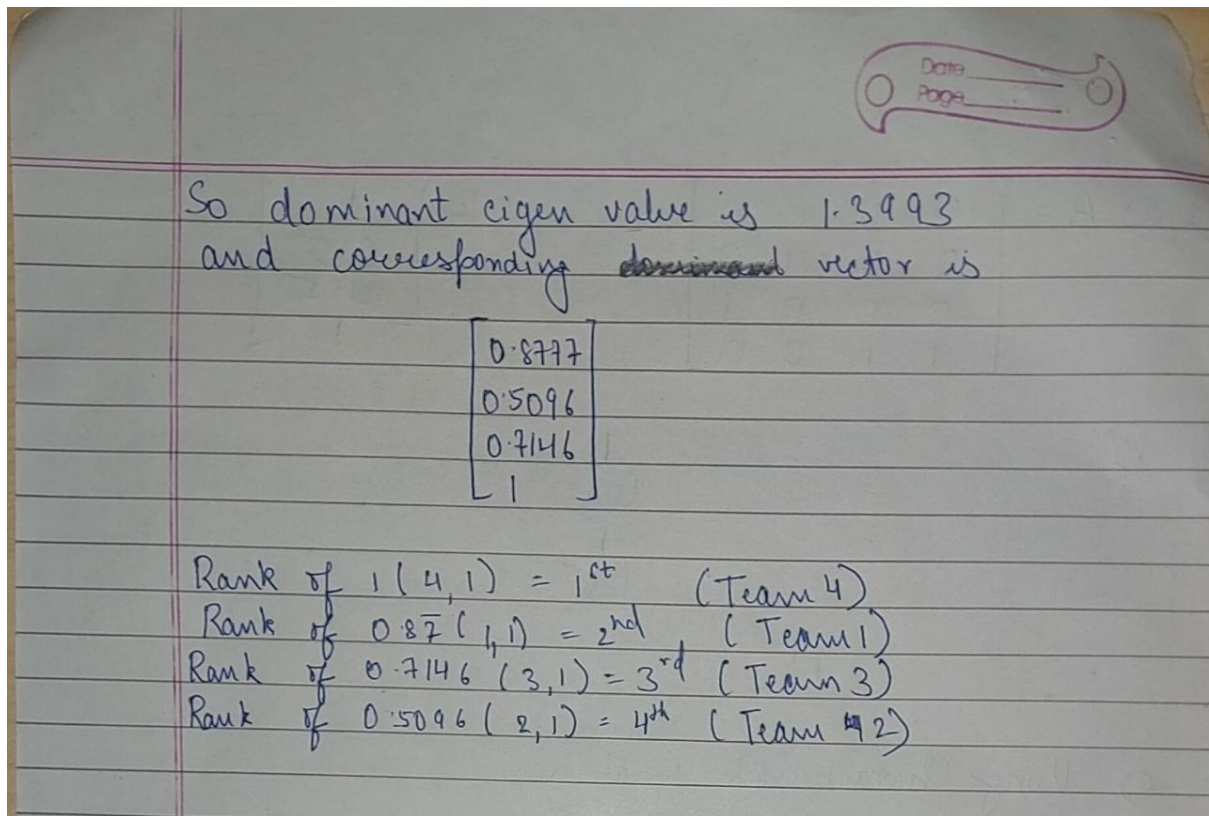 Date
Page
So dominant eigen value is 1.3993
and corresponding vector is
0.8777
0.5096
0.7146
1
Rank of 1 (4,1) = 1st (Team 4)
Rank of 0.87 (1,1) = 2nd (Team 1)
Rank of 0.7146 (3,1) = 3rd (Team 3)
Rank of 0.5096 (2,1) = 4th (Team 2)